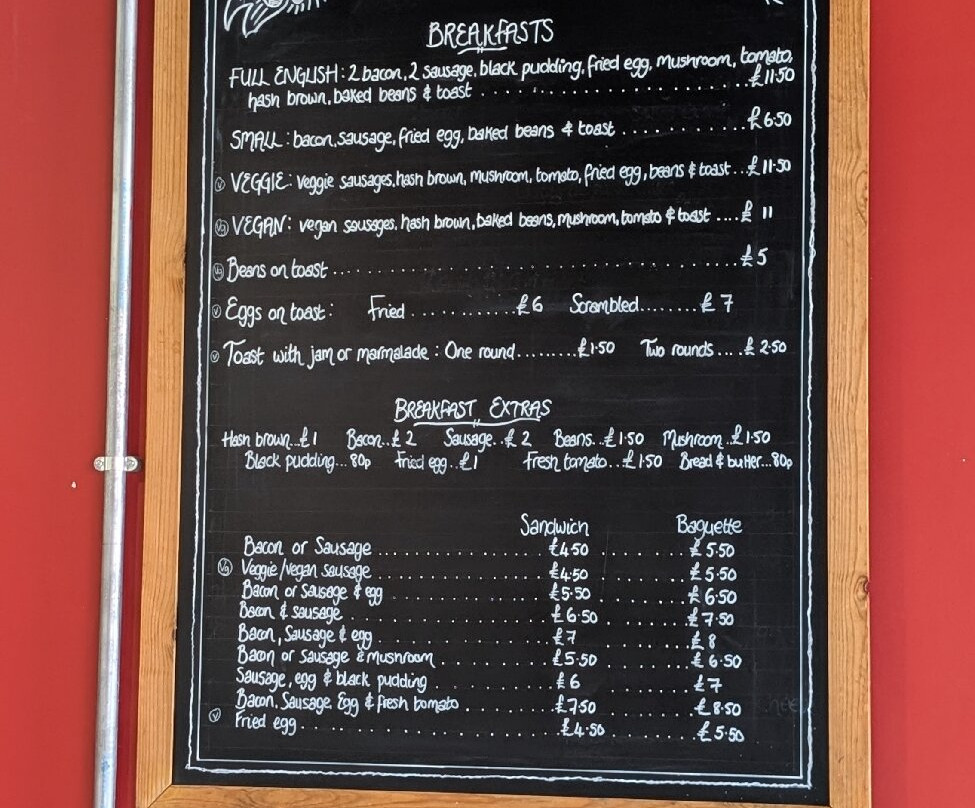 BREAKFASTS
FULL ENGLISH: 2 bacon, 2 sausage, black pudding, fried egg, mushroom, tomato,
hash brown, baked beans & toast . . . . . . . . . . . . . . . . . . . . £11.50
SMALL: bacon, sausage, fried egg, baked beans & toast . . . . . . . . . . £6.50
V VEGGIE: veggie sausages, hash brown, mushroom, tomato, fried egg, beans & toast...£11.50
Vg VEGAN: vegan sausages, hash brown, baked beans, mushroom, tomato & toast ....£ 11
Vg Beans on toast . . . . . . . . . . . . . . . . . . . . . . . . . . . . £5
V Eggs on toast: Fried . . . . . . . . . . £6 Scrambled........£ 7
V Toast with jam or marmalade: One round.........£1.50 Two rounds.....£ 2.50
BREAKFAST EXTRAS
Hash brown...£1 Bacon..£2 Sausage..£2 Beans...£1.50 Mushroom..£1.50
Black pudding...80p Fried egg..£1 Fresh tomato...£1.50 Bread & butter...80p
Sandwich Baguette
Bacon or Sausage . . . . . . . . . . £4.50 . . . . . . £5.50
Vg Veggie/vegan sausage . . . . . . . . . . £4.50 . . . . . . £5.50
Bacon or Sausage & egg . . . . . . . . . . £5.50 . . . . . . £6.50
Bacon & sausage . . . . . . . . . . £6.50 . . . . . . £7.50
Bacon, Sausage & egg . . . . . . . . . . £7 . . . . . . £8
Bacon or Sausage & mushroom . . . . . . £5.50 . . . . . . £6.50
Sausage, egg & black pudding . . . . . . £6 . . . . . . £7
Bacon, Sausage, Egg & fresh tomato . . . . . £7.50 . . . . . . £8.50
V Fried egg . . . . . . . . . . . . . . £4.50 . . . . . . £5.50